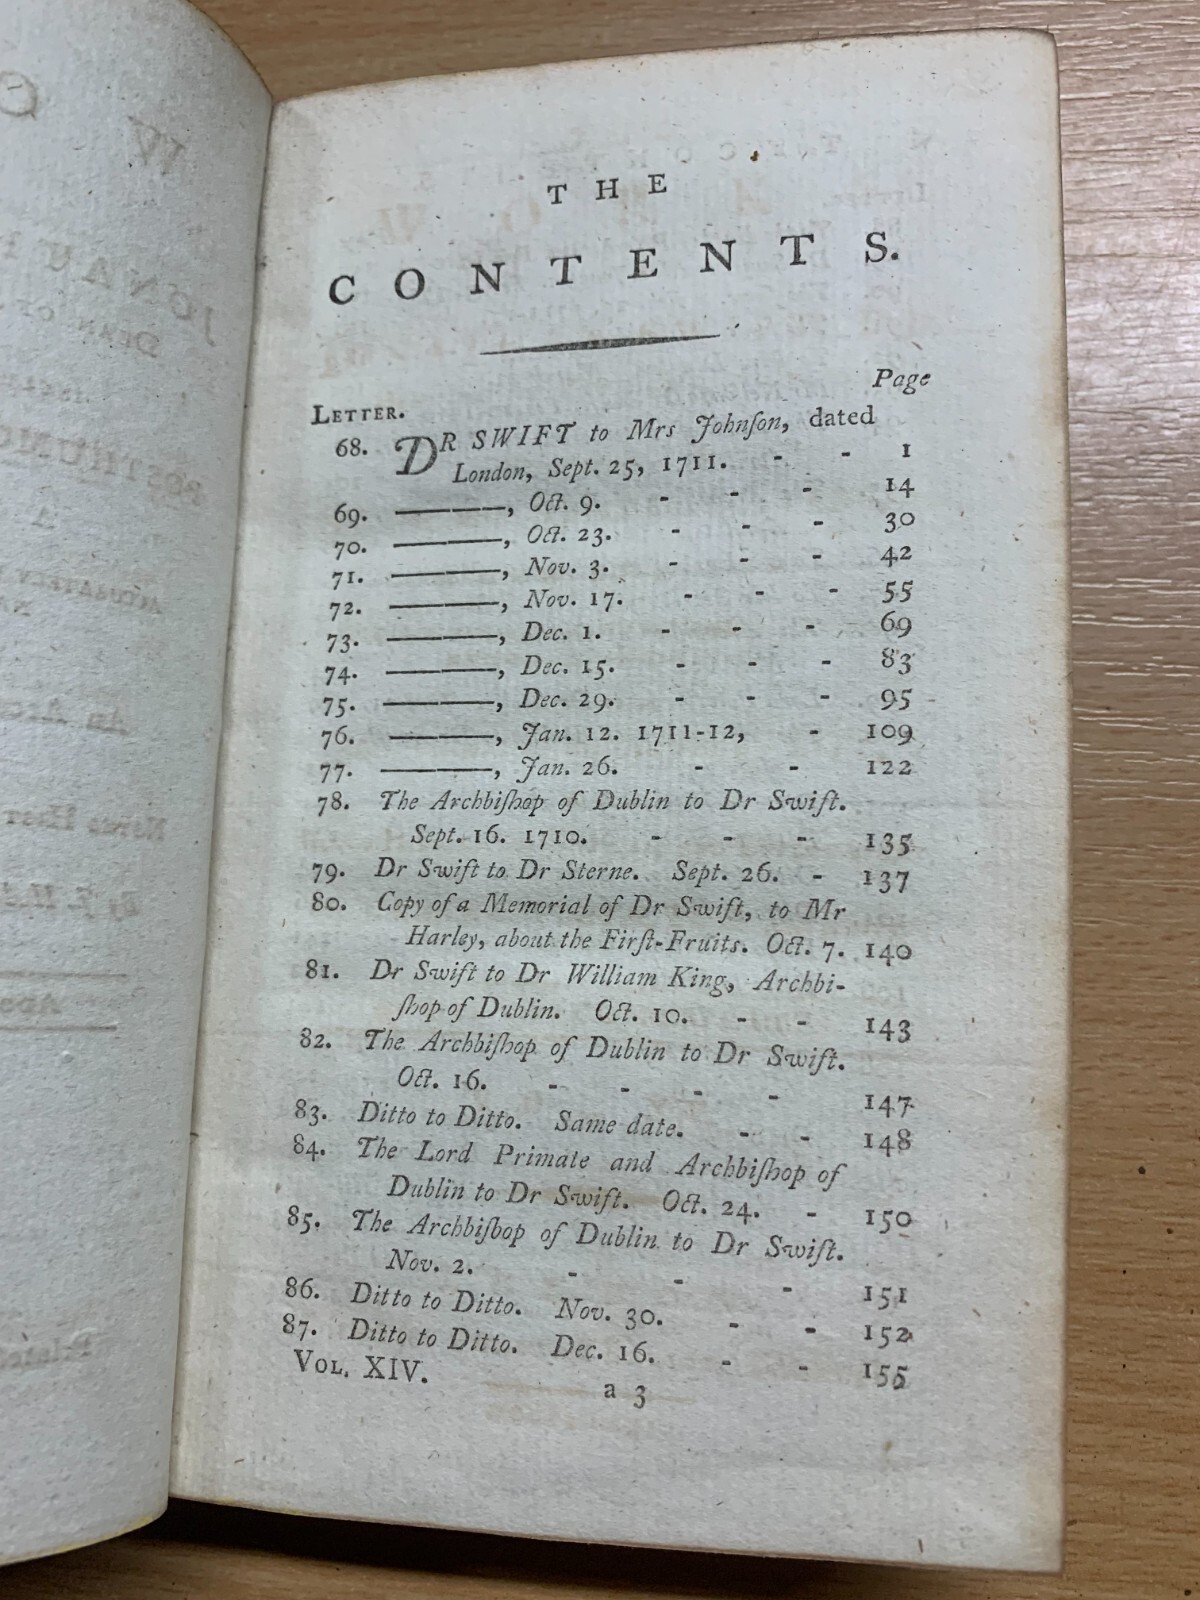 THE
CONTENTS.
Page
LETTER.
68. DR SWIFT to Mrs Johnſon, dated
London, Sept. 25, 1711. - - 1
69. ———, Oct. 9. - - - 14
70. ———, Oct. 23. - - - 30
71. ———, Nov. 3. - - - 42
72. ———, Nov. 17. - - - 55
73. ———, Dec. 1. - - - 69
74. ———, Dec. 15. - - - 83
75. ———, Dec. 29. - - - 95
76. ———, Jan. 12. 1711-12, - 109
77. ———, Jan. 26. - - 122
78. The Archbiſhop of Dublin to Dr Swift.
Sept. 16. 1710. - - - 135
79. Dr Swift to Dr Sterne. Sept. 26. - 137
80. Copy of a Memorial of Dr Swift, to Mr
Harley, about the Firſt-Fruits. Oct. 7. 140
81. Dr Swift to Dr William King, Archbi-
ſhop of Dublin. Oct. 10. - - 143
82. The Archbiſhop of Dublin to Dr Swift.
Oct. 16. - - - - 147
83. Ditto to Ditto. Same date. - - 148
84. The Lord Primate and Archbiſhop of
Dublin to Dr Swift. Oct. 24. - 150
85. The Archbiſhop of Dublin to Dr Swift.
Nov. 2. - - - 151
86. Ditto to Ditto. Nov. 30. - - 152
87. Ditto to Ditto. Dec. 16. - - 155
VOL. XIV. a 3